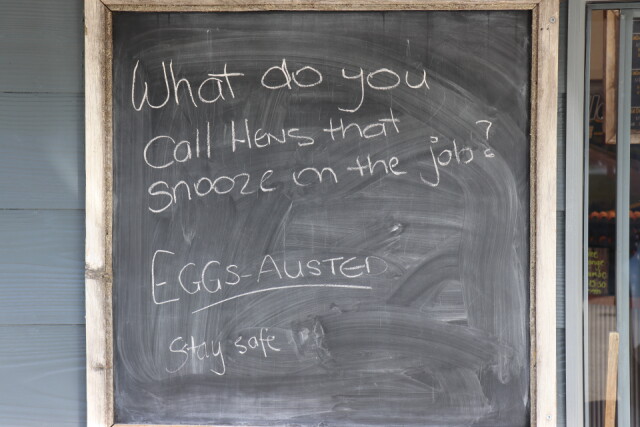 What do you
Call Hens that
snooze on the job?
EGGS-AUSTED
Stay safe